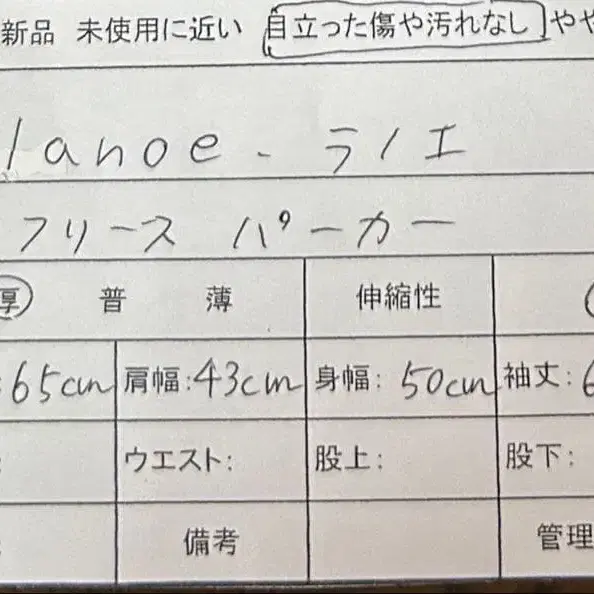 新品 未使用に近い 目立った傷や汚れなし やや
lanoe - ラノエ
フリース パーカー
厚 普 薄 伸縮性
:65cm 肩幅:43cm 身幅:50cm 袖丈:6
: ウエスト: 股上: 股下:
: 備考 管理